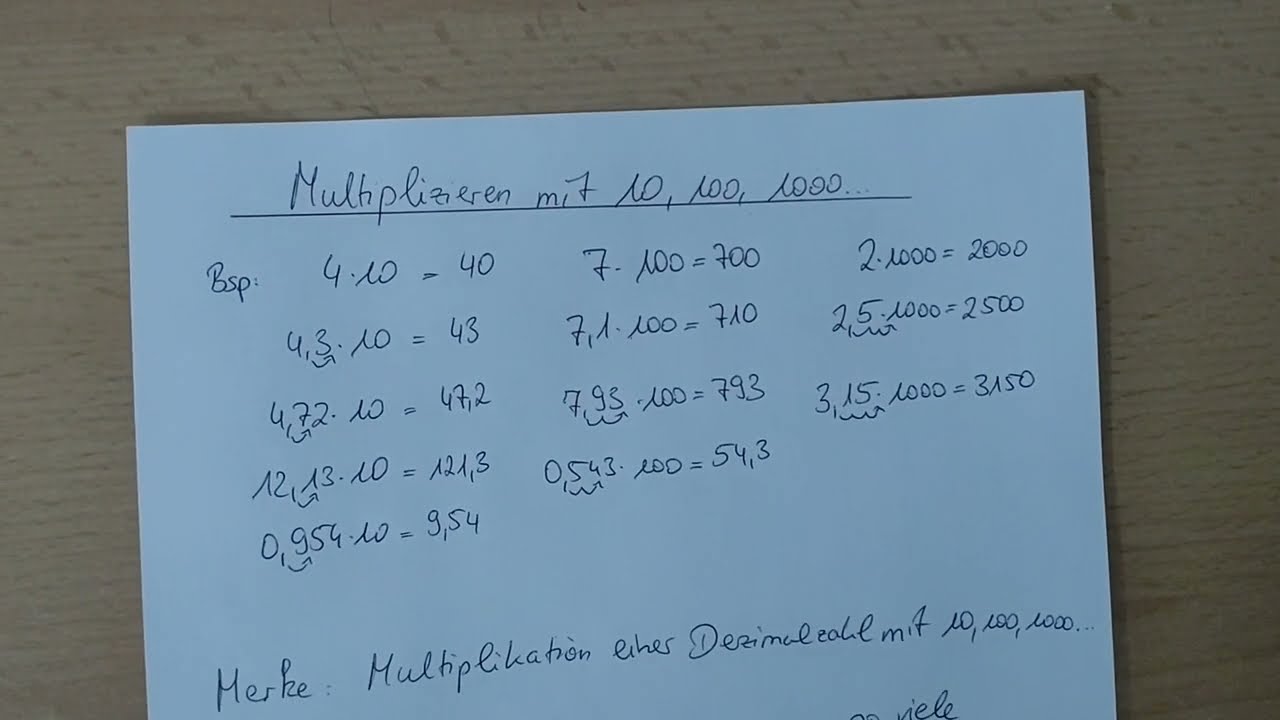 Multiplizieren mit 10, 100, 1000...
Bsp: 4·10 = 40 7·100=700 2·1000=2000
4,3·10 = 43 7,1·100=710 2,5·1000=2500
4,72·10 = 47,2 7,93·100=793 3,15·1000=3150
12,13·10=121,3 0,543·100=54,3
0,954·10=9,54
Merke: Multiplikation einer Dezimalzahl mit 10,100,1000...
viele